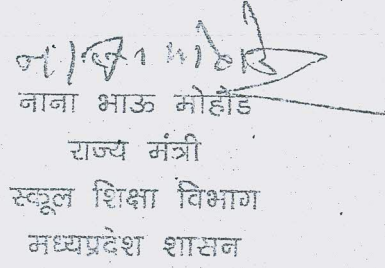 नाना भाऊ मोहोड
राज्य मंत्री
स्कूल शिक्षा विभाग
मध्यप्रदेश शासन